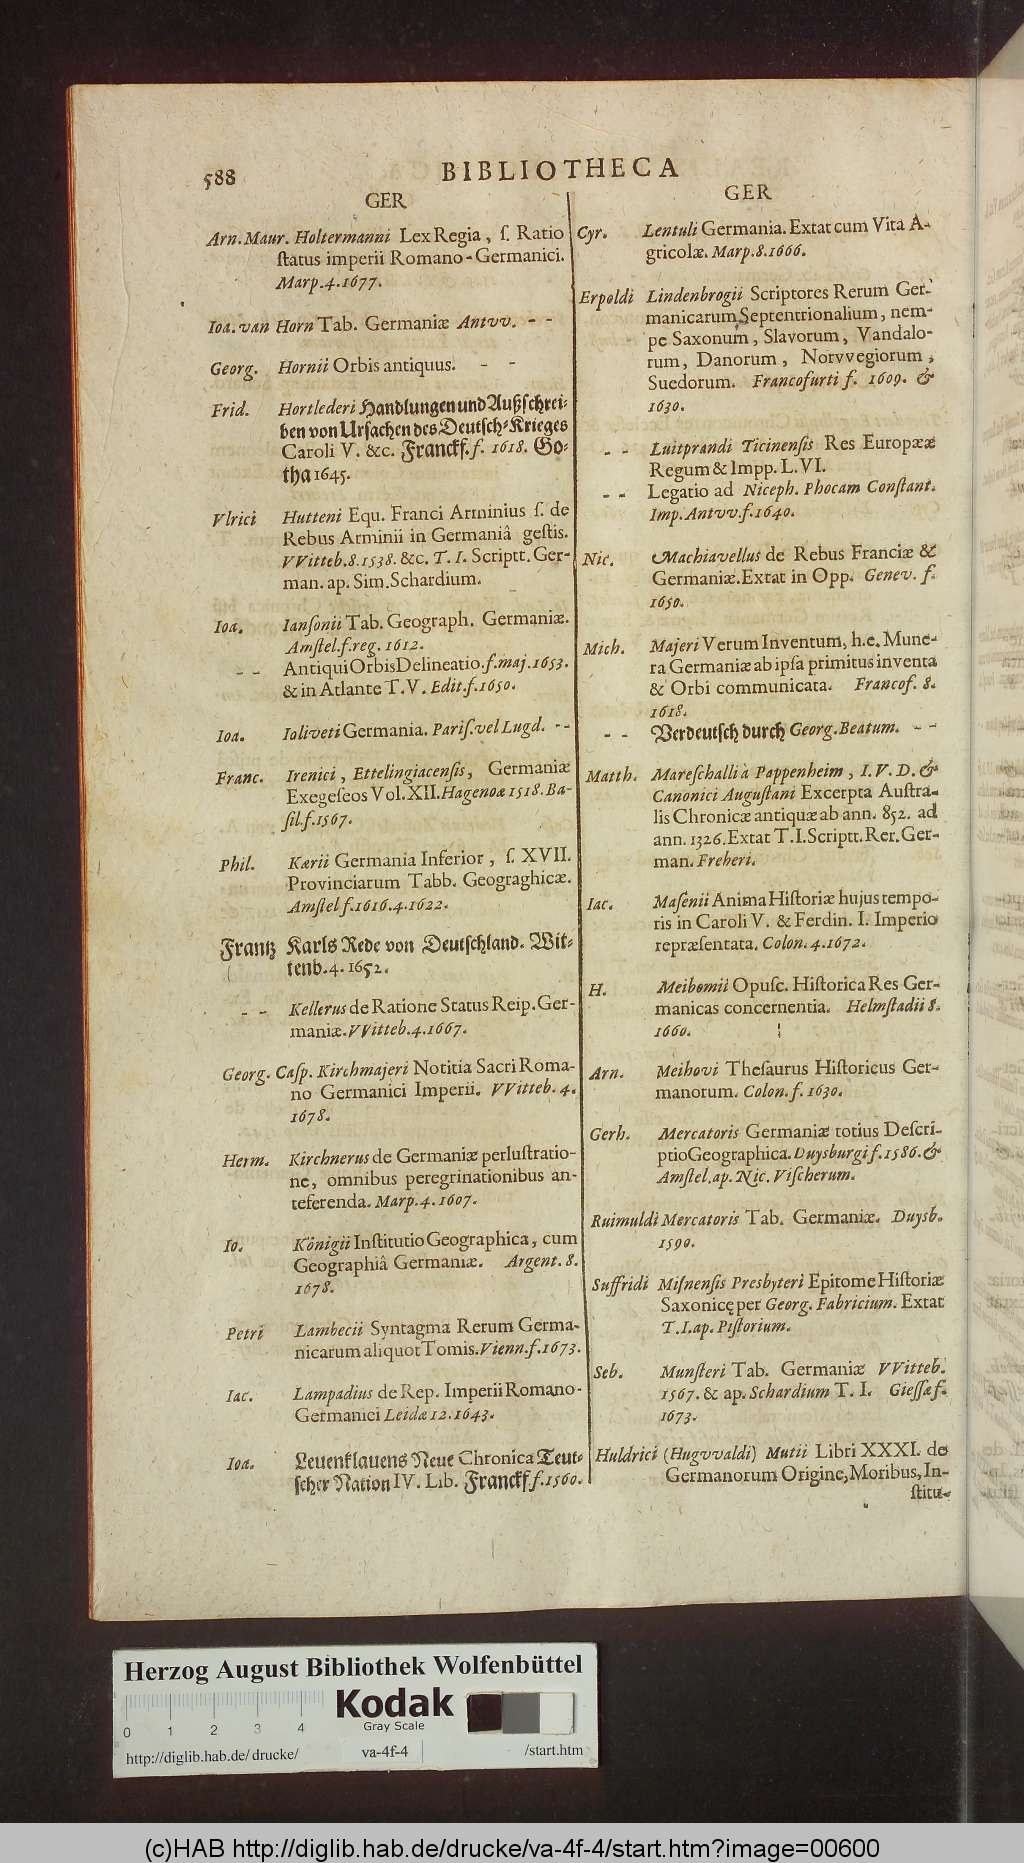 588
BIBLIOTHECA
GER
Arn. Maur. Holtermanni Lex Regia, ſ. Ratio
ſtatus imperii Romano-Germanici.
Marp. 4. 1677.
Ioa. van Horn Tab. Germaniæ Antvv. - -
Georg. Hornii Orbis antiquus. - -
Frid. Hortlederi Handlungen und Außſchrei-
ben von Urſachen des Deutſch-Krieges
Caroli V. &c. Franckf. f. 1618. Go-
tha 1645.
Vlrici Hutteni Equ. Franci Arminius ſ. de
Rebus Arminii in Germaniâ geſtis.
VVitteb. 8. 1538. &c. T. I. Scriptt. Ger-
man. ap. Sim. Schardium.
Ioa. Ianſonii Tab. Geograph. Germaniæ.
Amſtel. f. reg. 1612.
- - Antiqui Orbis Delineatio. f. maj. 1653.
& in Atlante T. V. Edit. f. 1650.
Ioa. Ioliveti Germania. Pariſ. vel Lugd. - -
Franc. Irenici, Ettelingiacenſis, Germaniæ
Exegeſeos Vol. XII. Hagenoæ 1518. Ba-
ſil. f. 1567.
Phil. Kærii Germania Inferior, ſ. XVII.
Provinciarum Tabb. Geograghicæ.
Amſtel f. 1616. 4. 1622.
Frantz Karls Rede von Deutſchland. Wit-
tenb. 4. 1652.
- - Kellerus de Ratione Status Reip. Ger-
maniæ. VVitteb. 4. 1667.
Georg. Caſp. Kirchmajeri Notitia Sacri Roma-
no Germanici Imperii. VVitteb. 4.
1678.
Herm. Kirchnerus de Germaniæ perluſtratio-
ne, omnibus peregrinationibus an-
teferenda. Marp. 4. 1607.
Io. Königii Inſtitutio Geographica, cum
Geographiâ Germaniæ. Argent. 8.
1678.
Petri Lambecii Syntagma Rerum Germa-
nicarum aliquot Tomis. Vienn. f. 1673.
Iac. Lampadius de Rep. Imperii Romano-
Germanici Leidæ 12. 1643.
Ioa. Leuenklauens Neue Chronica Teut-
ſcher Nation IV. Lib. Franckf f. 1560.
GER
Cyr. Lentuli Germania. Extat cum Vita A-
gricolæ. Marp. 8. 1666.
Erpoldi Lindenbrogii Scriptores Rerum Ger-
manicarum Septentrionalium, nem-
pe Saxonum, Slavorum, Vandalo-
rum, Danorum, Norvvegiorum,
Suedorum. Francofurti f. 1609. &
1630.
- - Luitprandi Ticinenſis Res Europææ
Regum & Impp. L. VI.
- - Legatio ad Niceph. Phocam Conſtant.
Imp. Antvv. f. 1640.
Nic. Machiavellus de Rebus Franciæ &
Germaniæ. Extat in Opp. Genev. f.
1650.
Mich. Majeri Verum Inventum, h.e. Mune-
ra Germaniæ ab ipſa primitus inventa
& Orbi communicata. Francof. 8.
1618.
- - Verdeutſch durch Georg. Beatum. - -
Matth. Mareſchalli à Pappenheim, I. V. D. &
Canonici Auguſtani Excerpta Auſtra-
lis Chronicæ antiquæ ab ann. 852. ad
ann. 1326. Extat T. I. Scriptt. Rer. Ger-
man. Freheri.
Iac. Maſenii Anima Hiſtoriæ hujus tempo-
ris in Caroli V. & Ferdin. I. Imperio
repræſentata. Colon. 4. 1672.
H. Meibomii Opuſc. Hiſtorica Res Ger-
manicas concernentia. Helmſtadii 8.
1660.
Arn. Meihovi Theſaurus Hiſtoricus Ger-
manorum. Colon. f. 1630.
Gerh. Mercatoris Germaniæ totius Deſcri-
ptio Geographica. Duysburgi f. 1586. &
Amſtel. ap. Nic. Viſcherum.
Ruimuldi Mercatoris Tab. Germaniæ. Duysb.
1590.
Suffridi Miſnenſis Presbyteri Epitome Hiſtoriæ
Saxonicę per Georg. Fabricium. Extat
T. I. ap. Piſtorium.
Seb. Munſteri Tab. Germaniæ VVitteb.
1567. & ap. Schardium T. I. Gieſſæ f.
1673.
Huldrici (Hugvvaldi) Mutii Libri XXXI. de
Germanorum Origine, Moribus, In-
ſtitu-
Herzog August Bibliothek Wolfenbüttel
Kodak
Gray Scale
0 1 2 3 4
http://diglib.hab.de/drucke/ va-4f-4 /start.htm
(c)HAB http://diglib.hab.de/drucke/va-4f-4/start.htm?image=00600